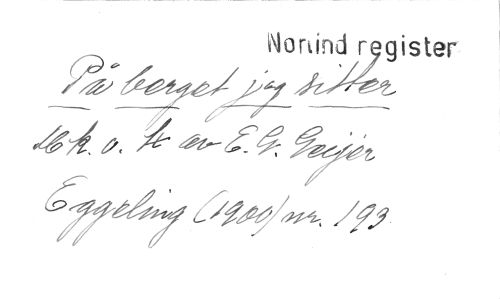 Norlind register
På berget jag sitter
Mk. o. t. av E. G. Geijer
Eggeling (1900) nr. 193